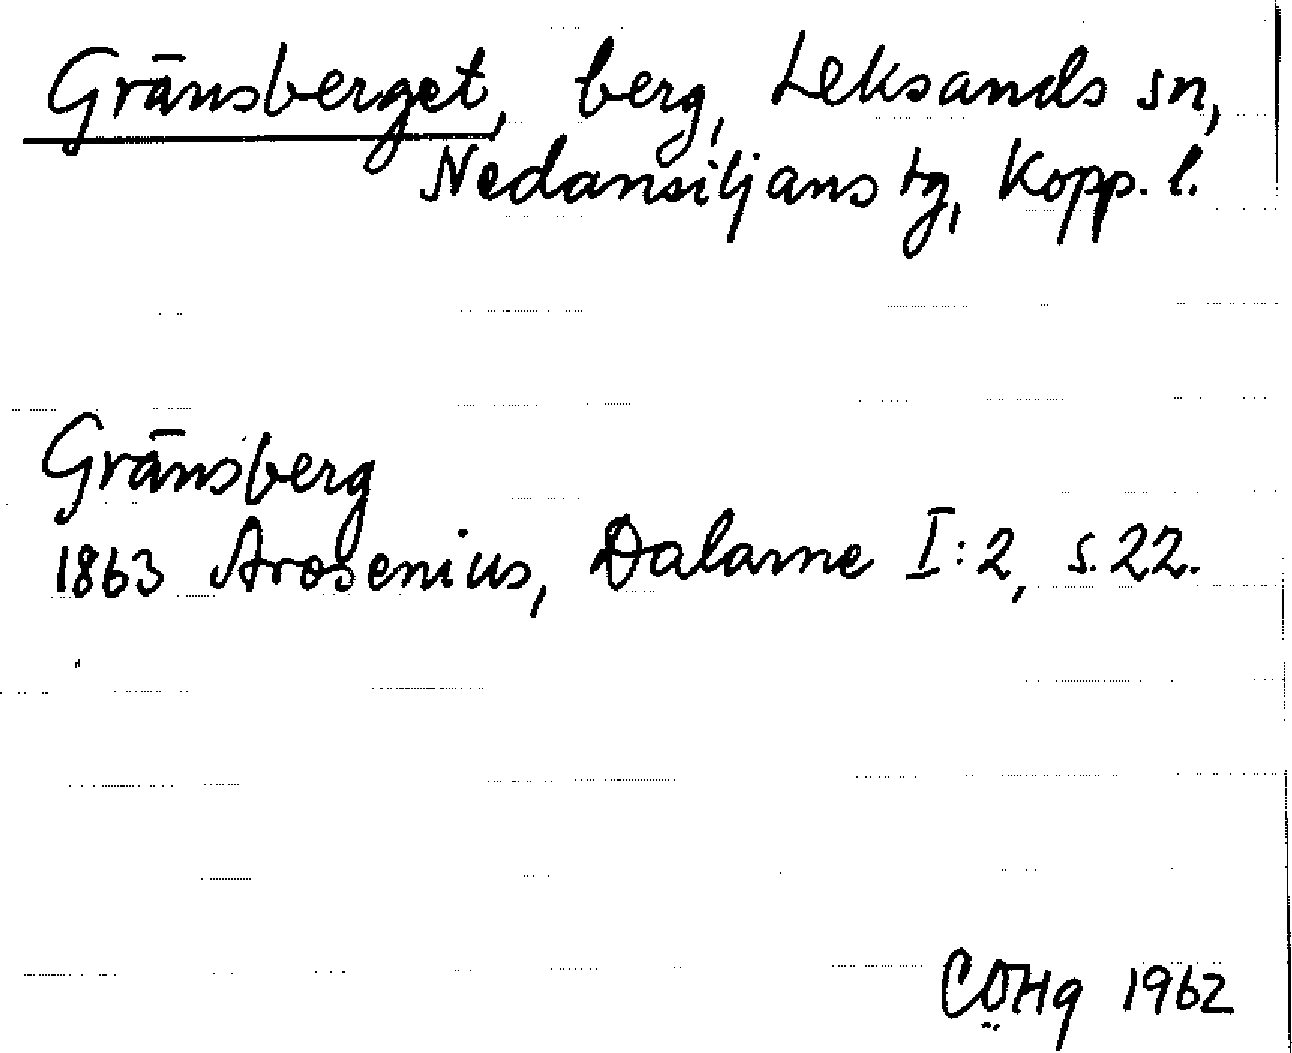 Gränsberget, berg, Leksands sn,
Nedansiljans tg, Kopp. l.
Gränsberg
1863 Arosenius, Dalarne I:2, s. 22.
CÖHg 1962